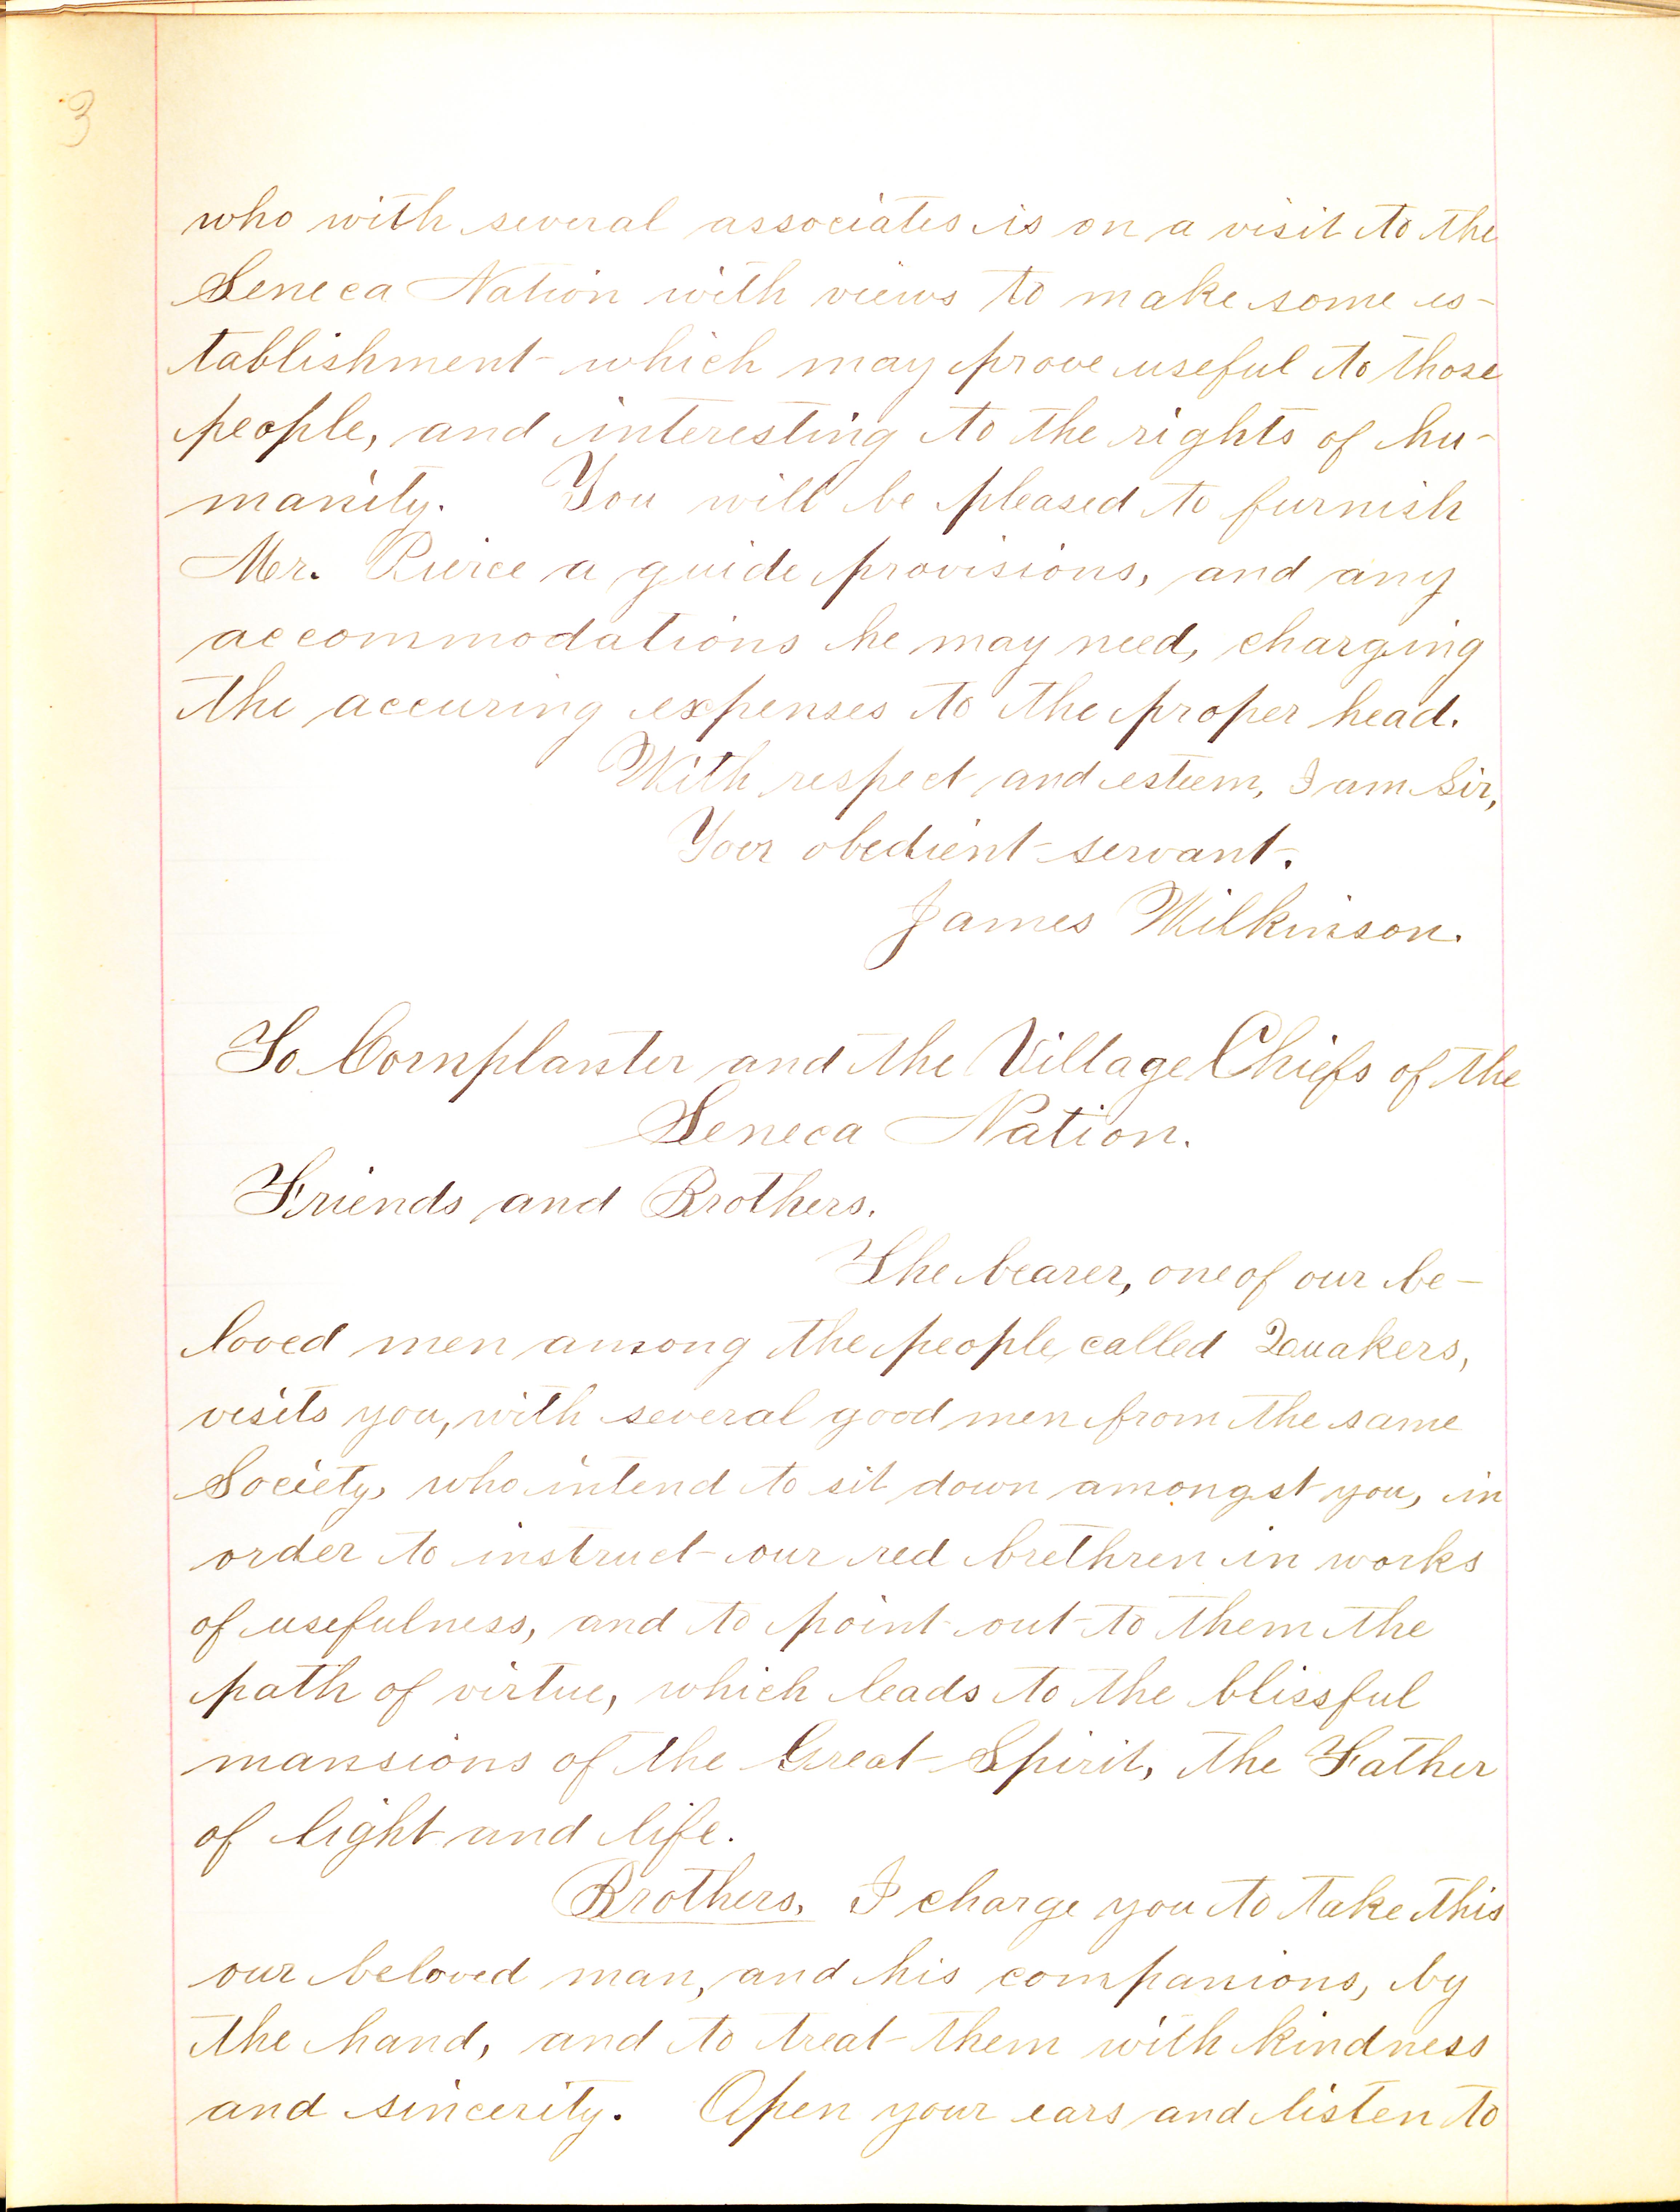 3
who with several associates is on a visit to the
Seneca Nation with views to make some es-
tablishment which may prove useful to those
people, and interesting to the rights of hu-
manity. You will be pleased to furnish
Mr. Pierce a guide provisions, and any
accommodations he may need, charging
the accuring expenses to the proper head.
With respect and esteem, I am Sir,
Your obedient servant.
James Wilkinson.
To Cornplanter and the Village Chiefs of the
Seneca Nation.
Friends and Brothers.
The bearer, one of our be-
loved men among the people called Quakers,
visits you, with several good men from the same
Society, who intend to sit down amongst you, in
order to instruct our red brethren in works
of usefulness, and to point out to them the
path of virtue, which leads to the blissful
mansions of the Great Spirit, the Father
of light and life.
Brothers. I charge you to take this
our beloved man, and his companions, by
the hand, and to treat them with kindness
and sincerity. Open your ears and listen to